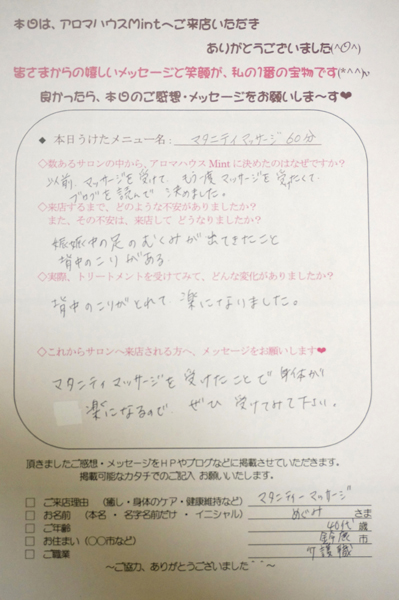 本日は、アロマハウスMintへご来店いただき
ありがとうございました(^O^)
皆さまからの嬉しいメッセージと笑顔が、私の1番の宝物です(*^^*)
良かったら、本日のご感想・メッセージをお願いしま〜す❤
◆ 本日うけたメニュー名： マタニティマッサージ60分
◇数あるサロンの中から、アロマハウス Mint に決めたのはなぜですか？
以前、マッサージを受けて、もう1度マッサージを受けたくて、
ブログを読んで決めました。
◇来店するまで、どのような不安がありましたか？
また、その不安は、来店して どうなりましたか？
妊娠中の足のむくみが出てきたこと
背中のこりがある
◇実際、トリートメントを受けてみて、どんな変化がありましたか？
背中のこりがとれて、楽になりました。
◇これからサロンへ来店される方へ、メッセージをお願いします❤
マタニティマッサージを受けたことで身体が
楽になるので ぜひ受けてみて下さい。
頂きましたご感想・メッセージをＨＰやブログなどに掲載させていただきます。
掲載可能なカタチでのご記入 お願いいたします。
□ ご来店理由 （癒し・身体のケア・健康維持など） マタニティーマッサージ
□ お名前 （本名・名字名前だけ・イニシャル） めぐみ さま
□ ご年齢 40代 歳
□ お住まい（〇〇市など） 鈴鹿 市
□ ご職業 介護職
〜ご協力、ありがとうございました＾＾〜